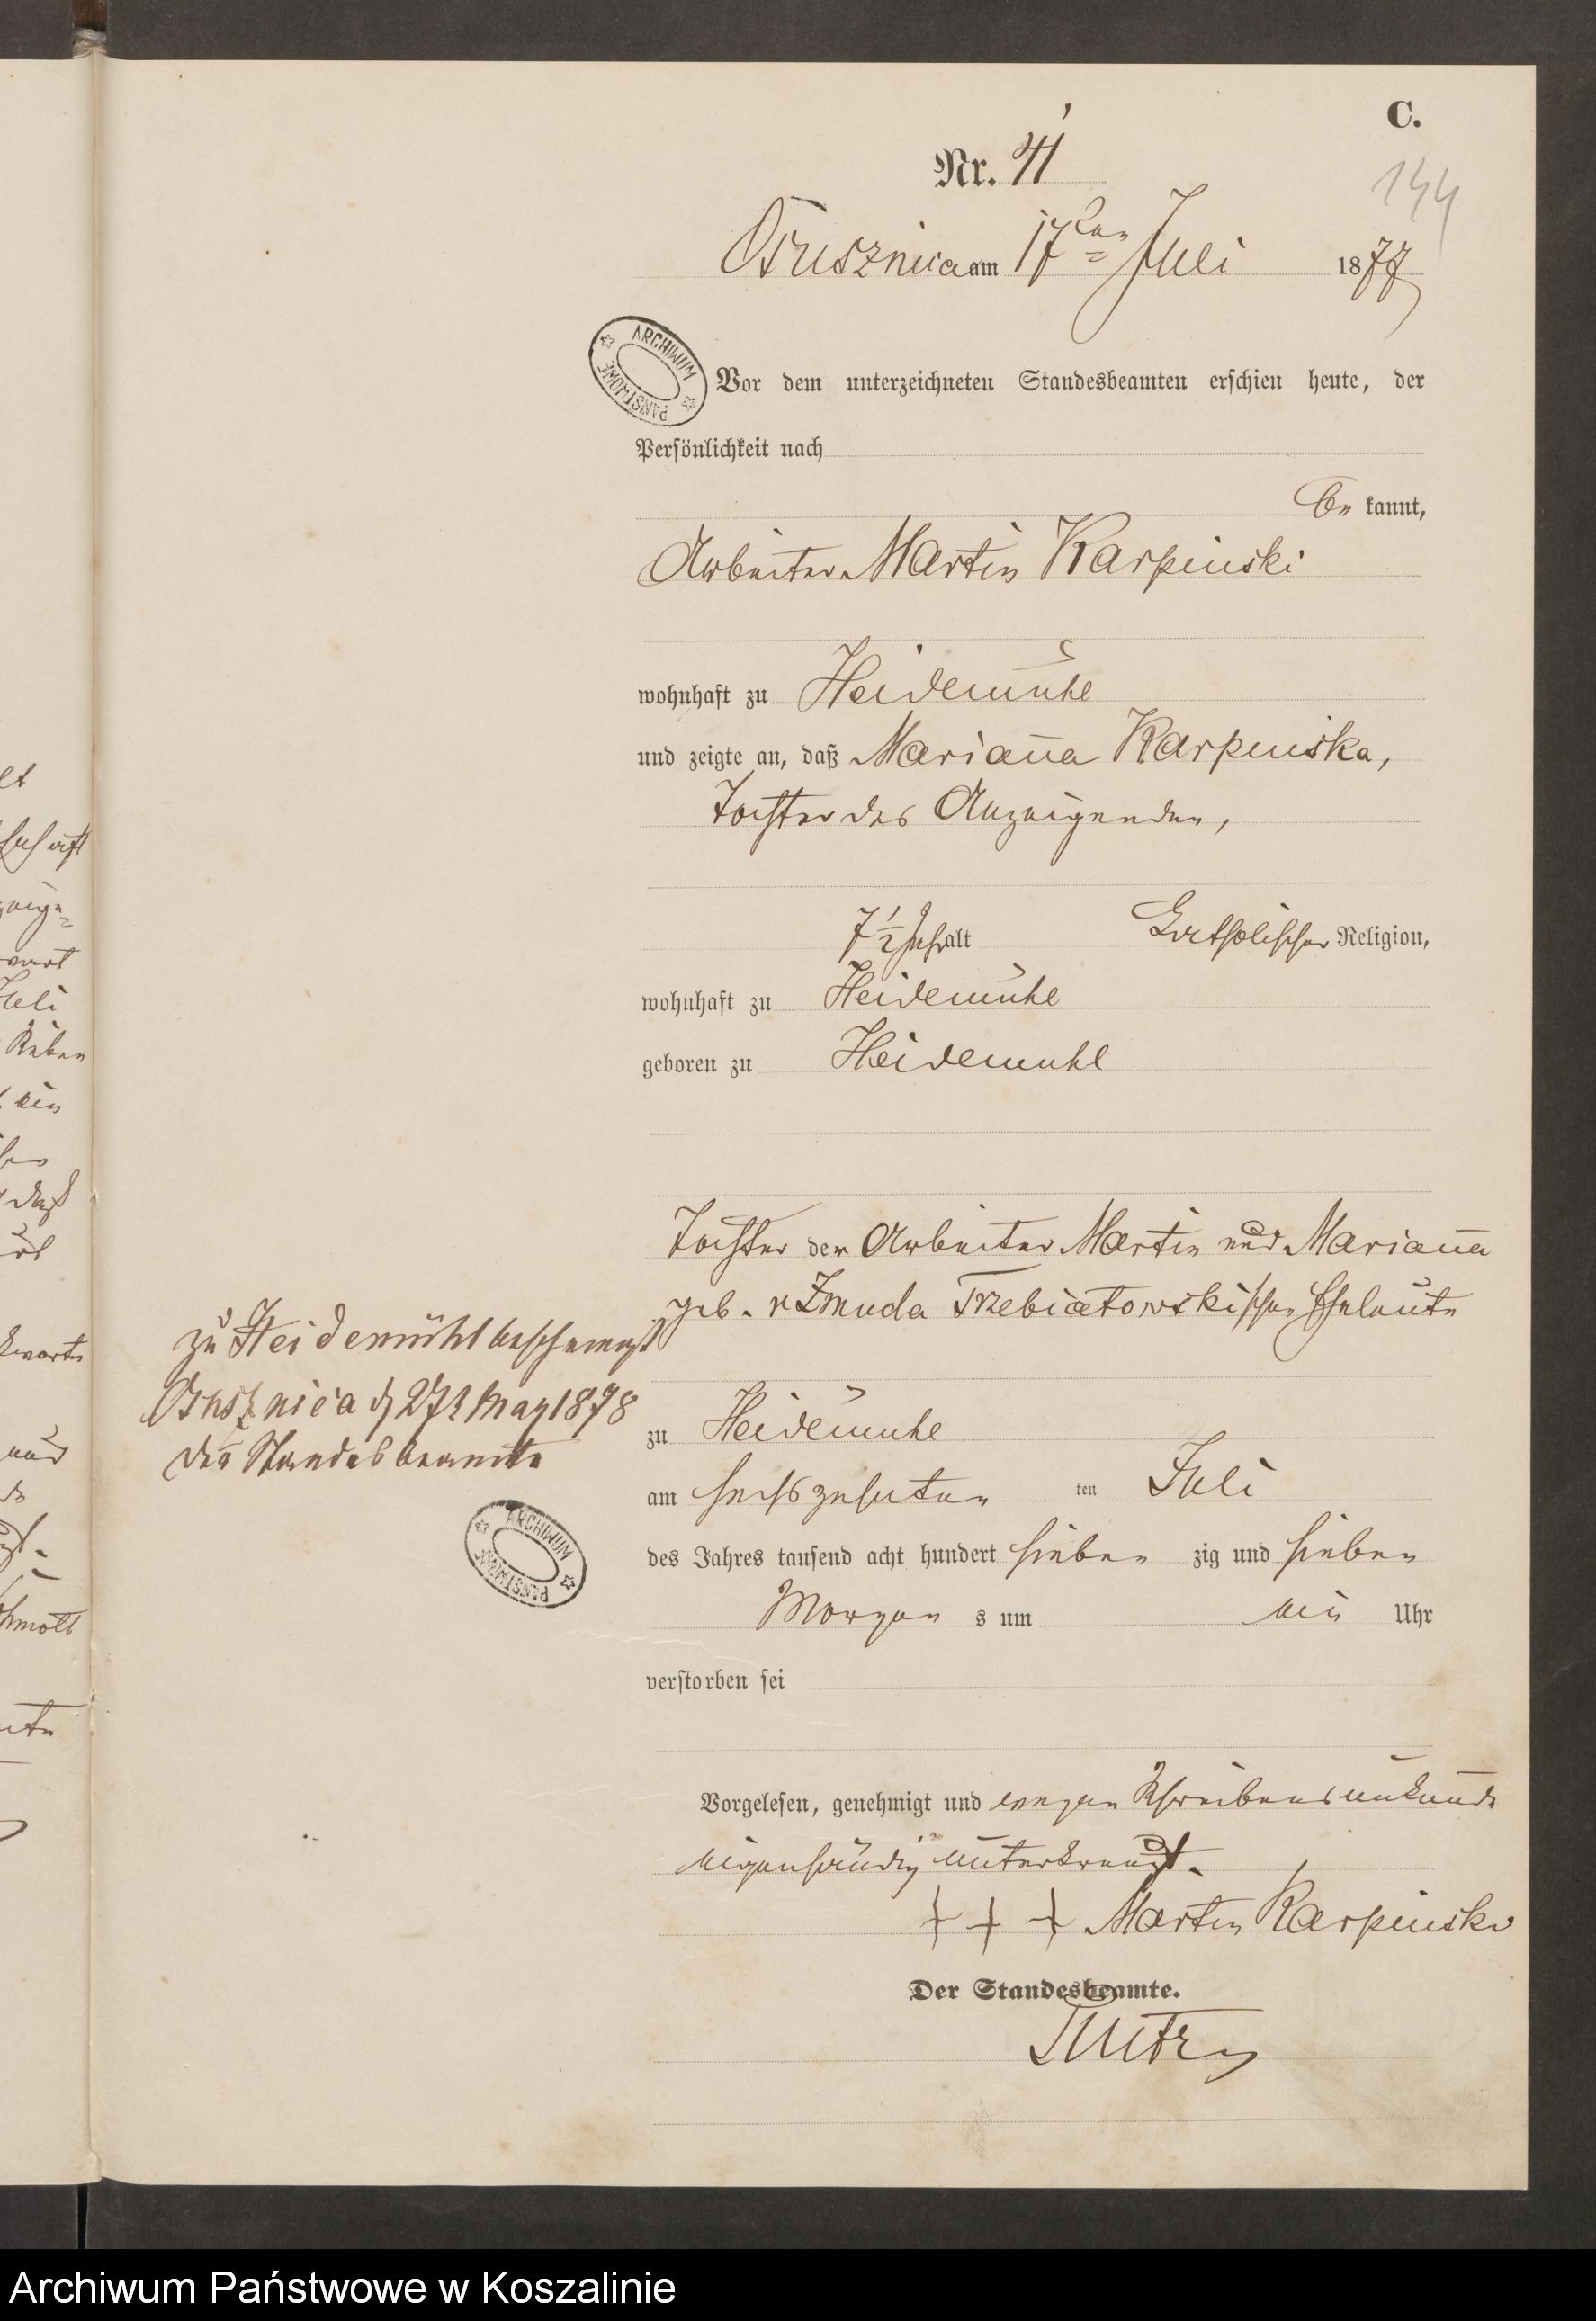 C.
Nr. 41
144
Osusznica am 17ten Juli 1877
ARCHIWUM PAŃSTWOWE
Vor dem unterzeichneten Standesbeamten erschien heute, der
Persönlichkeit nach
be kannt,
Arbeiter Martin Karpinski
wohnhaft zu Heidemühl
und zeigte an, daß Marian̄a Karpinska,
Tochter des Anzeigenden,
7 1/2 Jahr alt Katholischer Religion,
wohnhaft zu Heidemühl
geboren zu Heidemuhl
Tochter der Arbeiter Martin und Marian̄a
geb. v Zmuda Trzebiatowskischen Eheleute
zu Heidemühl
am sechszehnten ten Juli
des Jahres tausend acht hundert sieben zig und sieben
Morgen s um ein Uhr
verstorben sei
Vorgelesen, genehmigt und wegen Schreibensunkunde
eigenhändig unterkreuzt.
+ + + Martin Karpinski
Der Standesbeamte.
zu Heidemühl
Osusznica d 27t May 1878
der Standesbeamte
ARCHIWUM PAŃSTWOWE
Juli
ein
und
Archiwum Państwowe w Koszalinie